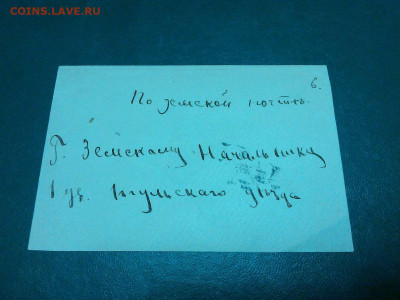 COINS.LAVE.RU
6.
По земской почтѣ.
Г. Земскому Начальнику
1 уч. уѣзда